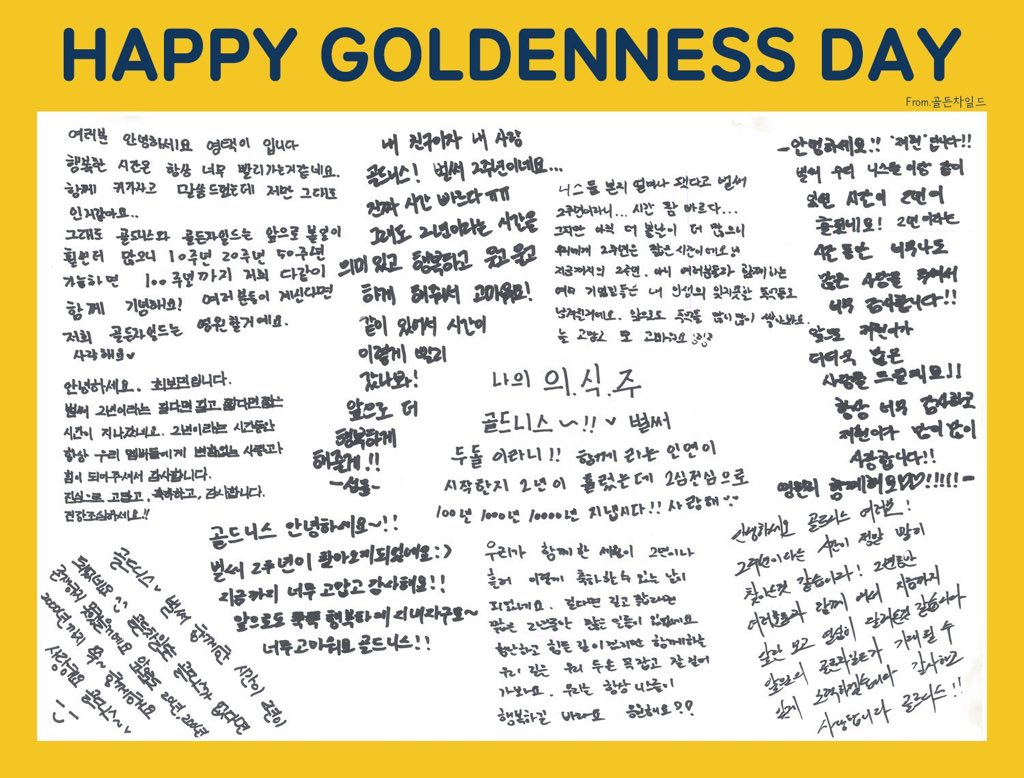 HAPPY GOLDENNESS DAY
From.골든차일드
여러분 안녕하세요 영택이 입니다
행복한 시간은 항상 너무 빨리가는거같네요.
함께 커가자고 말씀드렸는데 저만 그대로
인거같아요..
그래도 골드니스와 골든차일드는 앞으로 볼날이
훨씬더 많으니 10주년 20주년 50주년
가능하면 100주년까지 저희 다같이
함께 기념해요! 여러분들이 계신다면
저희 골든차일드는 영원할거에요.
사랑해요♥
내 친구이자 내 사랑
골드니스! 벌써 2주년이네요...
진짜 시간 빠르다 ㅠㅠ
그래도 2년이라는 시간을
의미 있고 행복하고 웃고 울고
하게 해줘서 고마워요!
같이 있어서 시간이
이렇게 빨리
갔나봐!
앞으로 더
행복하게
해줄게!!
니스를 본지 얼마나 됐다고 벌써
2주년이라니... 시간 참 빠르다...
하지만 아직 더 볼날이 더 많으니
우리에게 2주년은 짧은 시간이에요
지금까지의 2주년, 역시 여러분들과 함께하는
여러 기념일들은 내 인생의 잊지못할 추억들로
남겨질거에요. 앞으로도 추억을 많이많이 쌓아봐요.
늘 고맙고 또 고마워요
-안녕하세요!! 입니다!!
벌써 우리 니스를 이랑 같이
보낸 시간이 2년이
흘렀네요! 2년이라는
시간동안 너무나도
많은 사랑을 주셔서
너무 감사합니다!!
앞으로
더더욱 많은
사랑을 드릴게요!!
항상 너무 감사하고
많이많이
사랑합니다!!
영원히 함께해요♡♡!!!!!-
안녕하세요. 최보민입니다.
벌써 2년이라는 길다면 길고 짧다면 짧은
시간이 지나갔네요. 2년이라는 시간동안
항상 우리 멤버들에게 변함없는 사랑과
힘이 되어주셔서 감사합니다.
진심으로 고맙고, 축하하고, 감사합니다.
건강조심하세요!!
나의 의.식.주
골드니스~!!♥ 벌써
두돌 이라니!! 함께 라는 인연이
시작한지 2년이 흘렀는데 2심전심으로
100년 1000년 10000년 지냅시다!! 사랑해
골드니스 안녕하세요~!!
벌써 2주년이 찾아오게되었네요:)
지금까지 너무 고맙고 감사해요!!
앞으로도 쭉쭉 행복하게 지내자구요~
너무고마워요 골드니스!!
우리가 함께 한 세월이 2년이나
흘러 이렇게 축하할수 있는 날이
되었네요. 길다면 길고 짧다면
짧은 2년동안 많은 일들이 있었네요
힘든 길이 함께하는
우리 같은 우리 두손 꼭잡고 잘 걸어
가보아요. 우리는 항상 니스들이
행복하길 바라요 원해요??
골드니스♥ 벌써 함께한 시간이 2년이
됐네요 골든차일드는 골드니스가 없다면
존재하지 못했을거에요 앞으로도 20년, 200년
2000년까지 쭉~ 함께해요
사랑해요 골드니스~
안녕하세요 골드니스 여러분!
2주년이라는 시간이 정말 빨리
찾아온것 같습니다! 2년동안
여러분들과 함께 여서 지금까지
앞만 보고 열심히 달려온것 같습니다
앞으로의 골든차일드가 기대될 수
있게 노력하겠습니다 감사하고
사랑합니다 골드니스!!